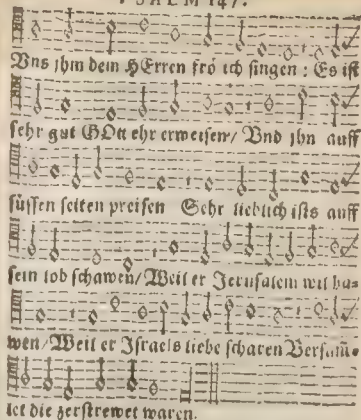 PSALM 147.
Vns jhm dem HErren frö ich singen : Es ist
sehr gut GOtt ehr erweisen/ Vnd jhn auff
süssen seiten preisen Sehr lieblich ists auff
sein lob schawen/ Weil er Jerusalem wil ba-
wen/ Weil er Israels liebe scharen Versam̃-
let die zerstrewet waren.